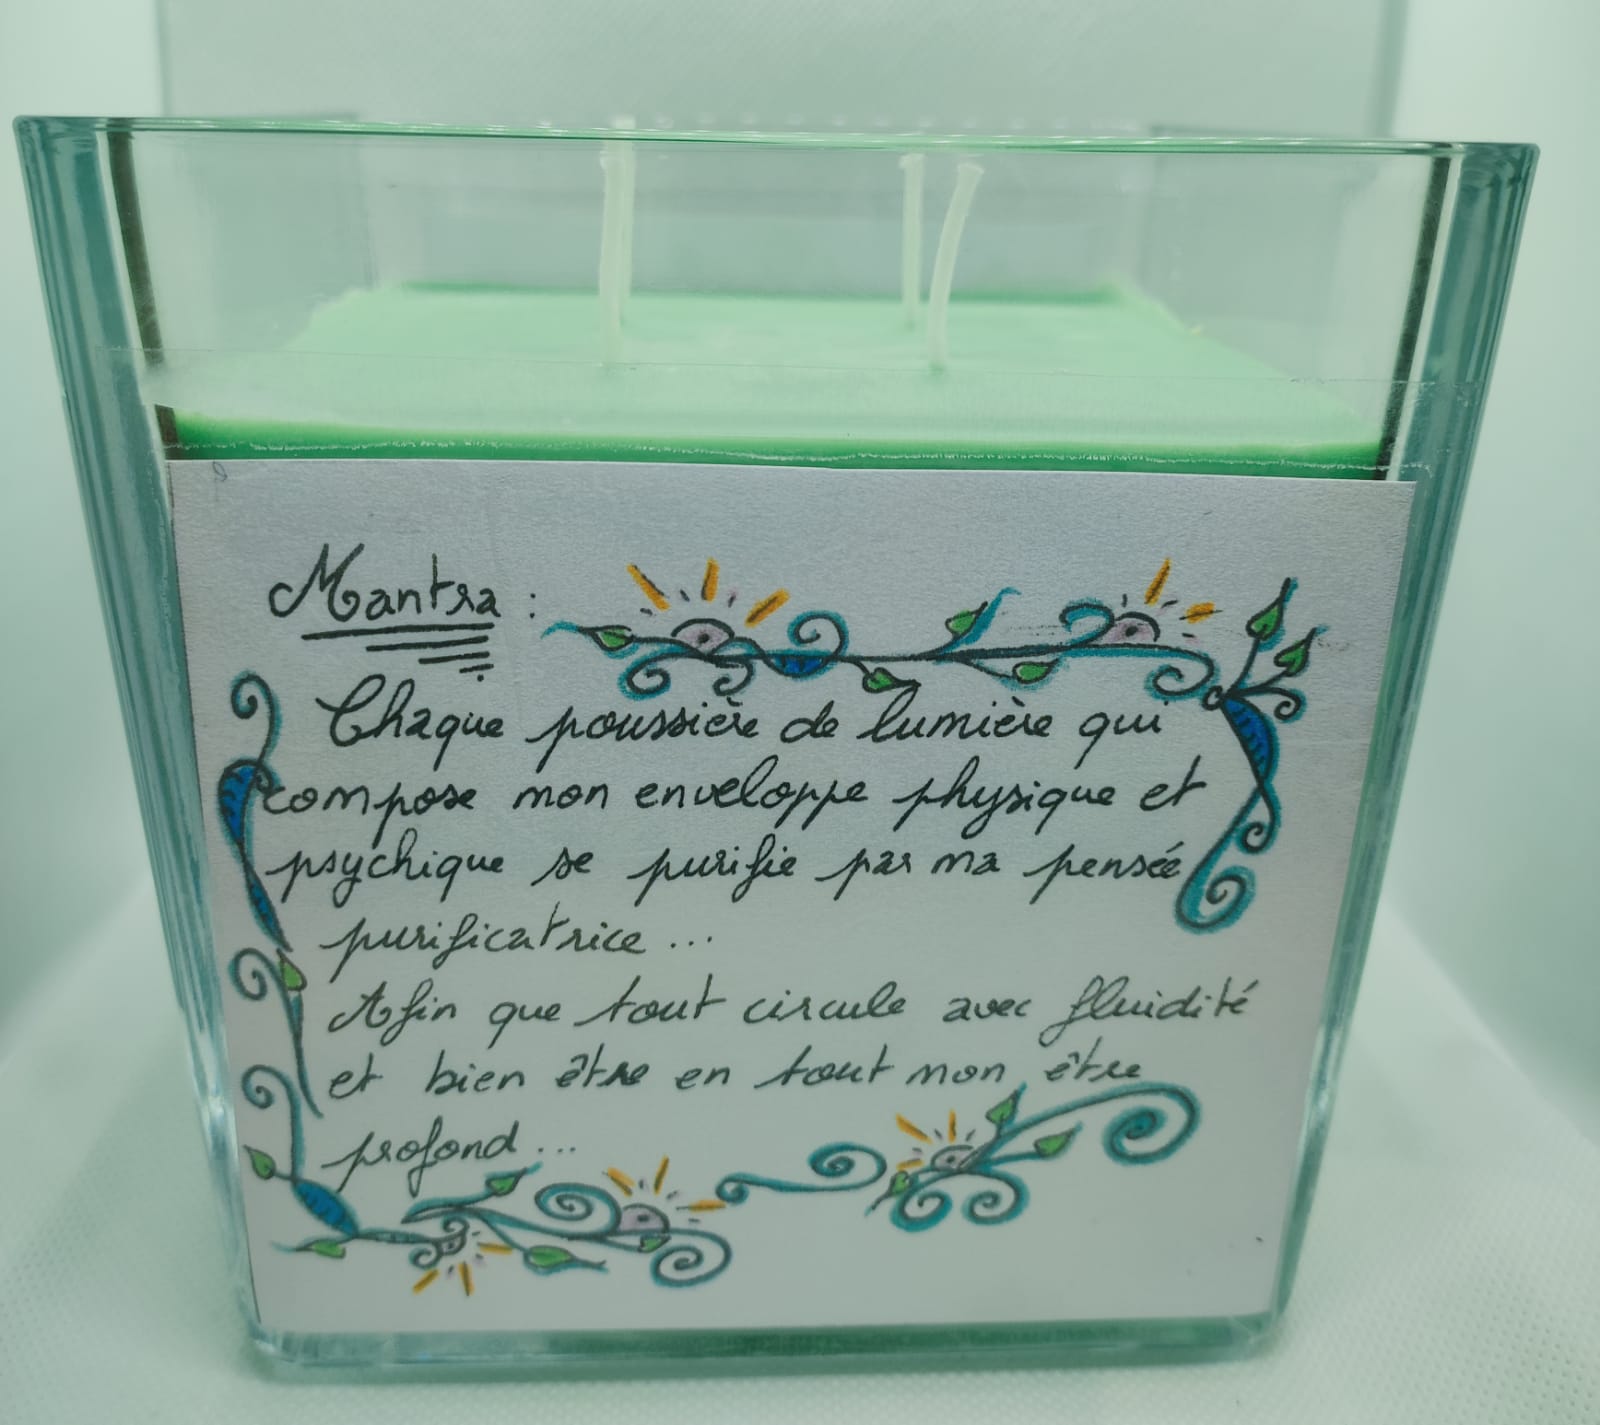 Mantra :
Chaque poussière de lumière qui
compose mon enveloppe physique et
psychique se purifie par ma pensée
purificatrice ...
Afin que tout circule avec fluidité
et bien être en tout mon être
profond ...